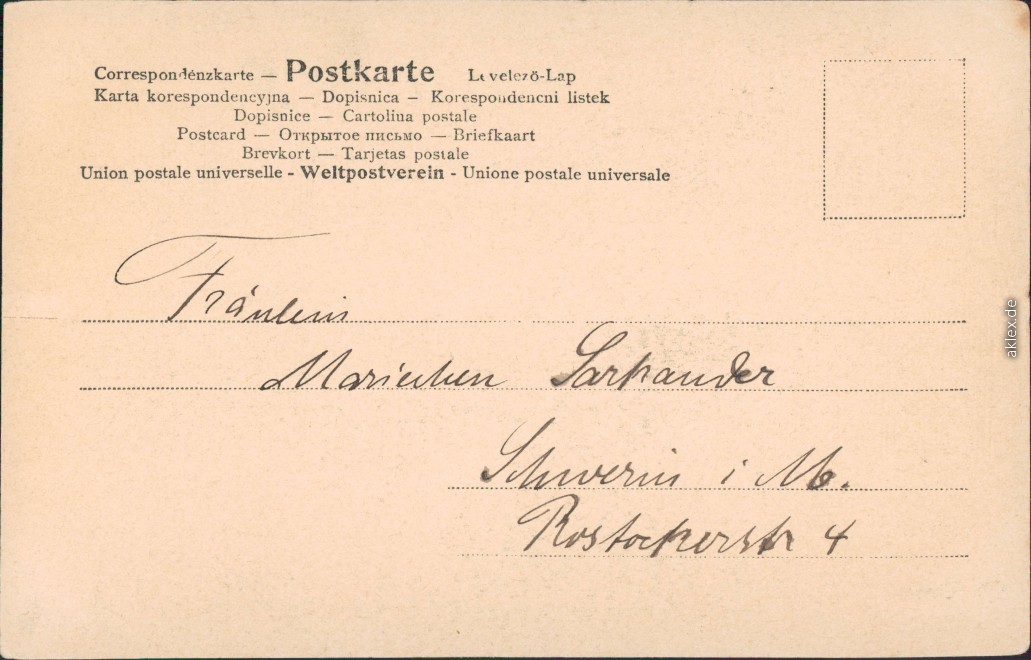 Correspondénzkarte — Postkarte Levelező-Lap
Karta korespondencyjna — Dopisnica — Korespondencni listek
Dopisnice — Cartolina postale
Postcard — Открытое письмо — Briefkaart
Brevkort — Tarjetas postale
Union postale universelle - Weltpostverein - Unione postale universale
Fräulein
Mariechen Sarkander
Schwerin i M.
Rostockerstr 4
aklex.de